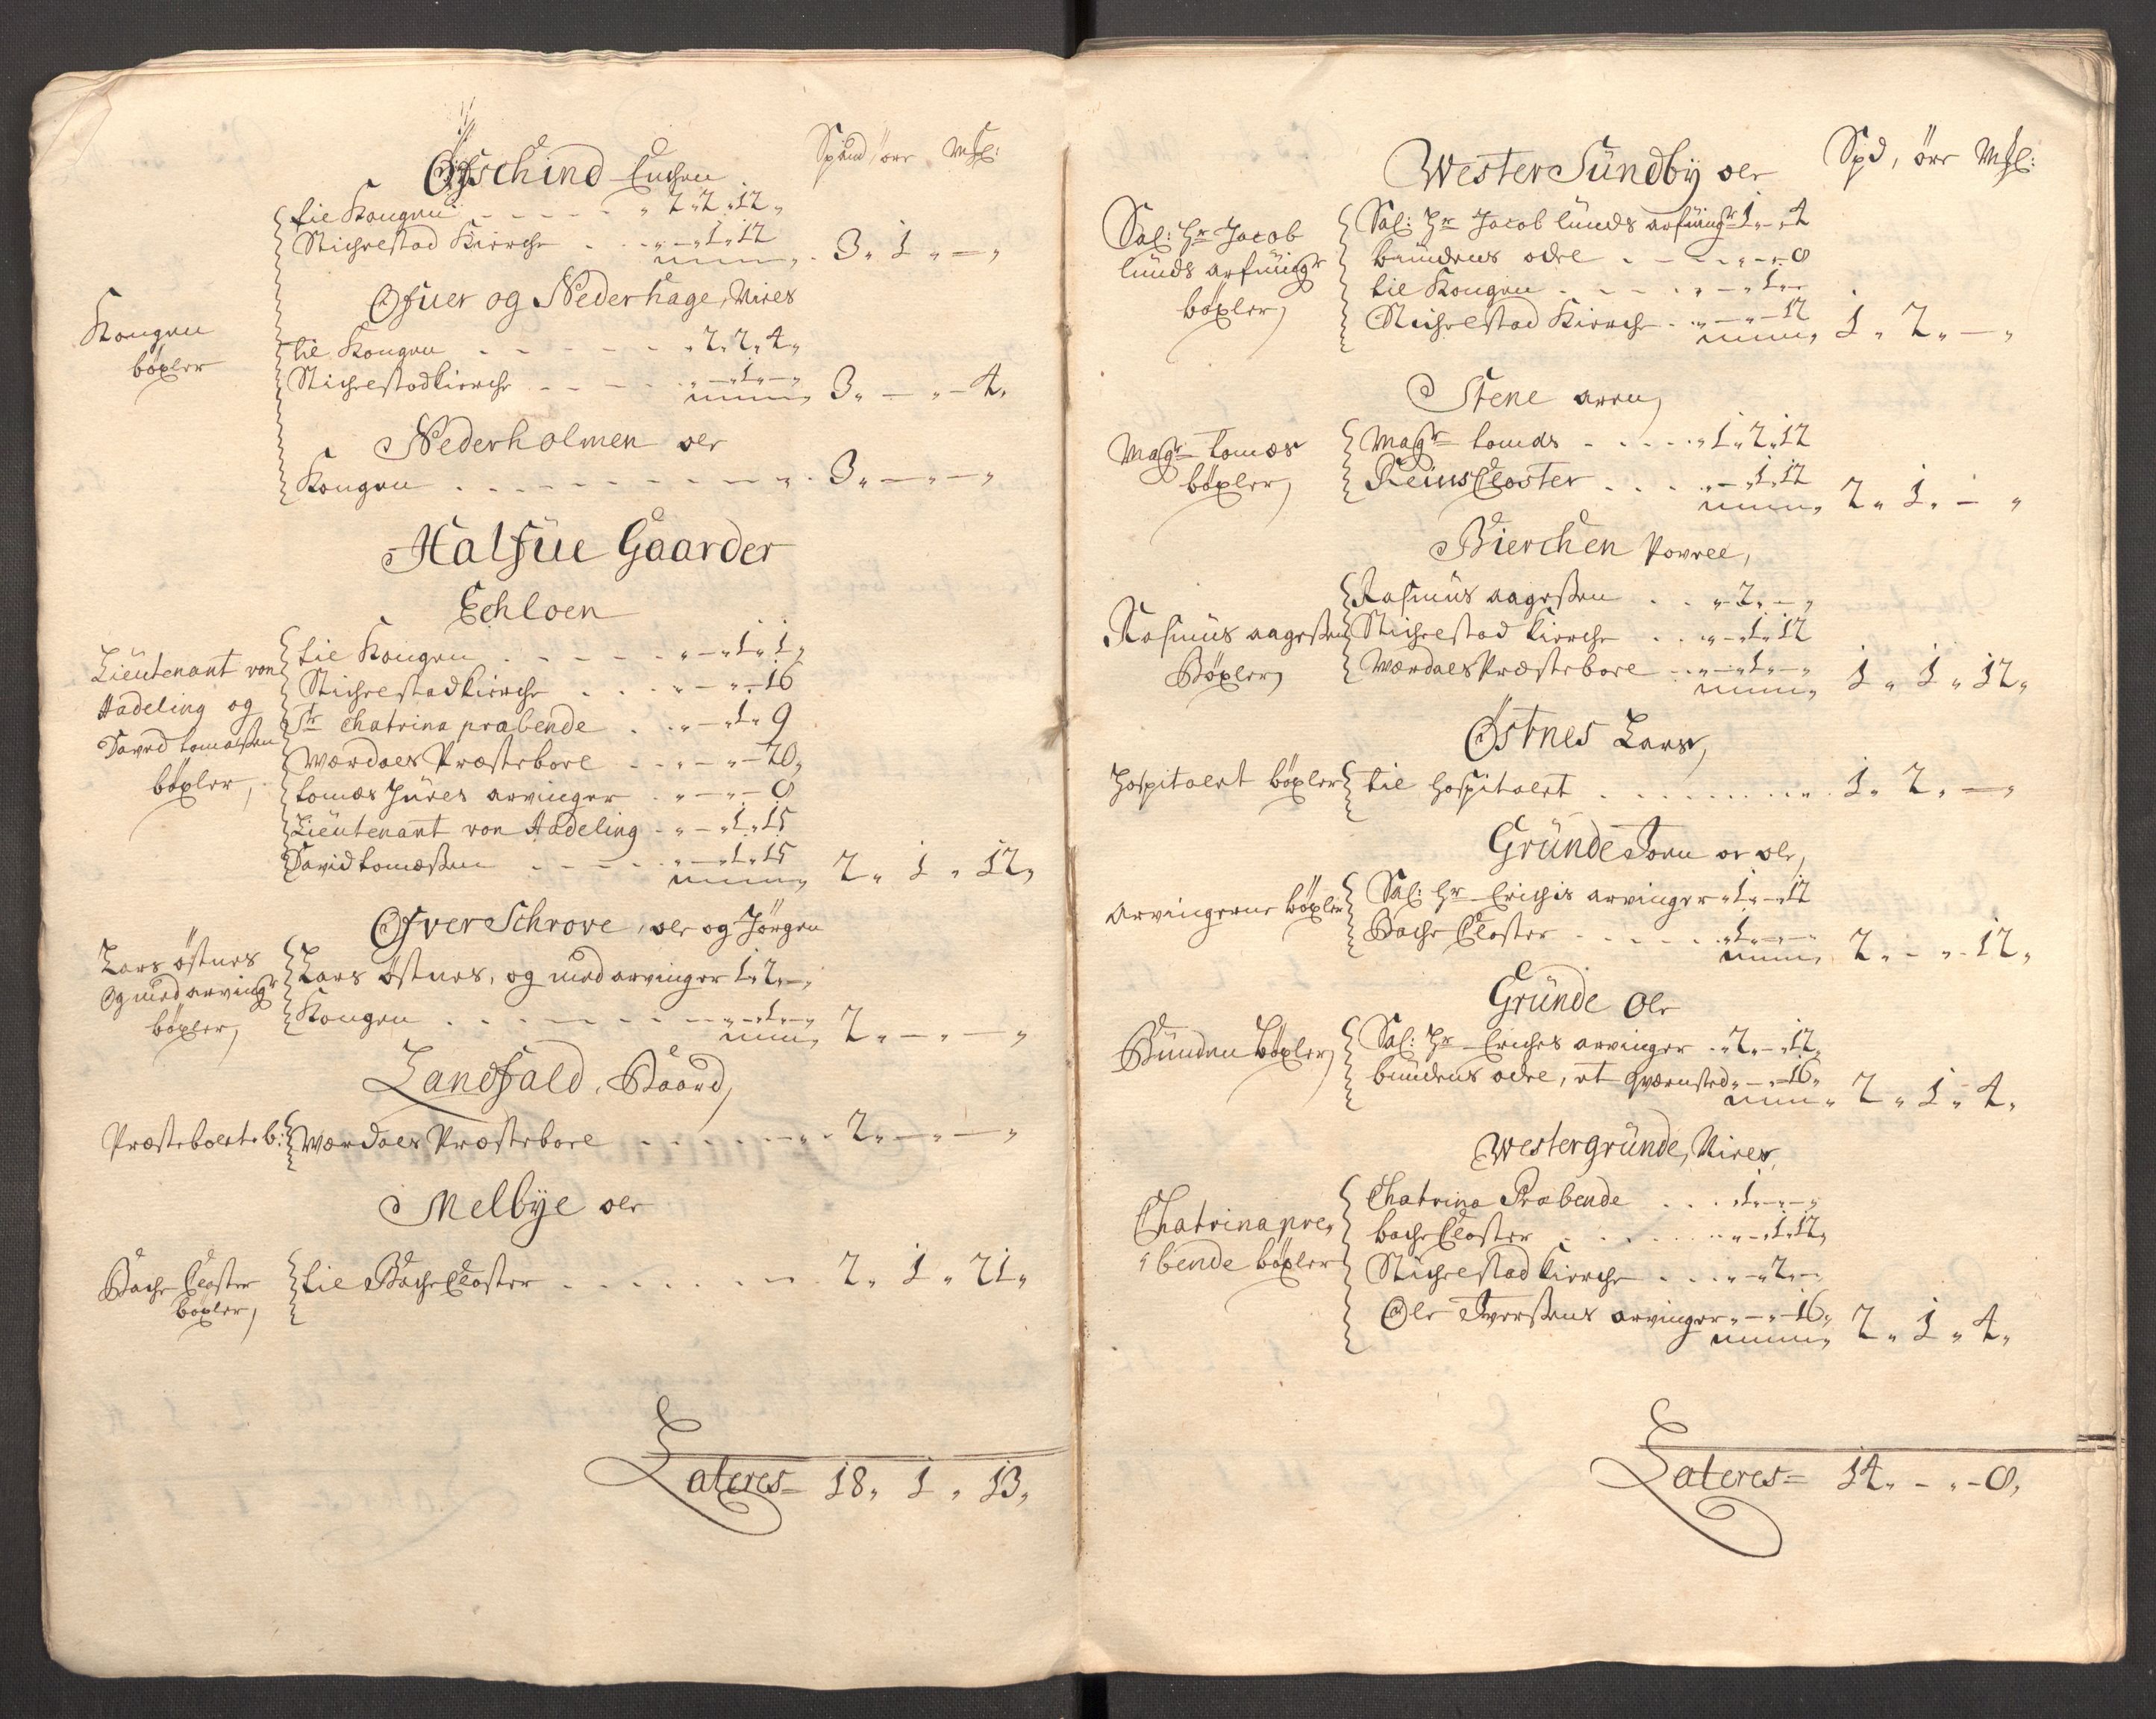 Spand, öre Mßl:
Øfschind Enchen
til Kongen - - - - - " 2 " 2 " 12 "
Stichelstad Kierche . . . " - " 1 " 12
3 " 1 " - "
Ofuer og Nederhage, Niels
Kongen
böxler
til Kongen . - - - - - " 2 " 2 " 4 "
Stichelstad kierche - - - . " - " 1 " - "
3 " - " - 4 "
Nederholmen ole
Kongen . - - - - - - - - - " . 3 " - " - "
Halfüe Gaarder
Echloen
Lieutenant von
Hadeling og
David tomasßen
böxler,
til Kongen . - - - - - " - " 1 " 1 "
Stichelstad kierche . . . . " - " - 16
St chatrina præbende . . " - " 1 " 9
Wærdals Præstebole - - " - " - 20 "
tomas Jüels arvinger . " - " - 8
Lieutenant von Hadeling - " - " 1 " 15
David tomæßen . - - - - " - " 1 " 15
2 " 1 " 12 "
Ofver Schrove, ole og Jörgen
Lars östnes
Og med arvingr
böxler,
Lars östnes, og med arvinger 1 " 2 " - "
Kongen . - - - - - - - " - " 1 " - "
2 " - " - "
Landfald, Baard,
Præstebolet b: Wærdals Præstebole . . . - - - " . 2 " - " - "
Melbye ole
Bache Closter
böxler,
til Bache Closter . . . . . . - " . 2 " 1 " 21 "
Lateres = 18 " 1 " 13 "
Wester Sundby ole
Spd, öre Mßl:
Sal: Hr Jacob
lunds arfuingr
böxler,
Sal: Hr Jacob lunds arfuingr 1 " - " 4
bundens odel . - - - " - " - 8
til Kongen . - - . . " - " 1 " -
Stichelstad Kierche . " - " - 12
1 " 2 " - "
Stene aren,
Magr tomæs
böxler,
Magr tomas - . - . . " 1 " 2 " 12
Reins Closter . . . " - " 1 " 12
2 " 1 " - "
Bierchen Povvel,
Rasmus aagesßen
Böxler,
Rasmus aageßen . . " 2 " - "
Stichelstad kierche . . " - " 1 " 12
Wærdals Præstebole - " - " 1 " - "
1 " 1 " 12 "
Østnes Lars,
Hospitalet böxler til hospitalet . . . . . . . . " . 1 " 2 " - "
Gründe Joen oc ole,
arvingerne böxler
Sal: Hr Erichis arvinger " 1 " - " 12
Bache Closter - . - . . " 1 " - " -
2 " - " 12 "
Gründe Ole
Bunden böxler,
Sal: Hr Eriches arvinger . " 2 " - " 12 "
bundens odel, et Quernsted " - " - 16 "
2 " 1 " 4 "
Westergründe, Niels,
Chatrina pre-
bende böxler
Chatrina Præbende . . . " 1 " - " - "
bache Closter . - . . . . " - " 1 " 12 "
Stichelstad kierche . . . " - " 2 " -
Ole Iverßens arvinger " - " - 16 "
2 " 1 " 4 "
Lateres = 14 " - " - 8 "